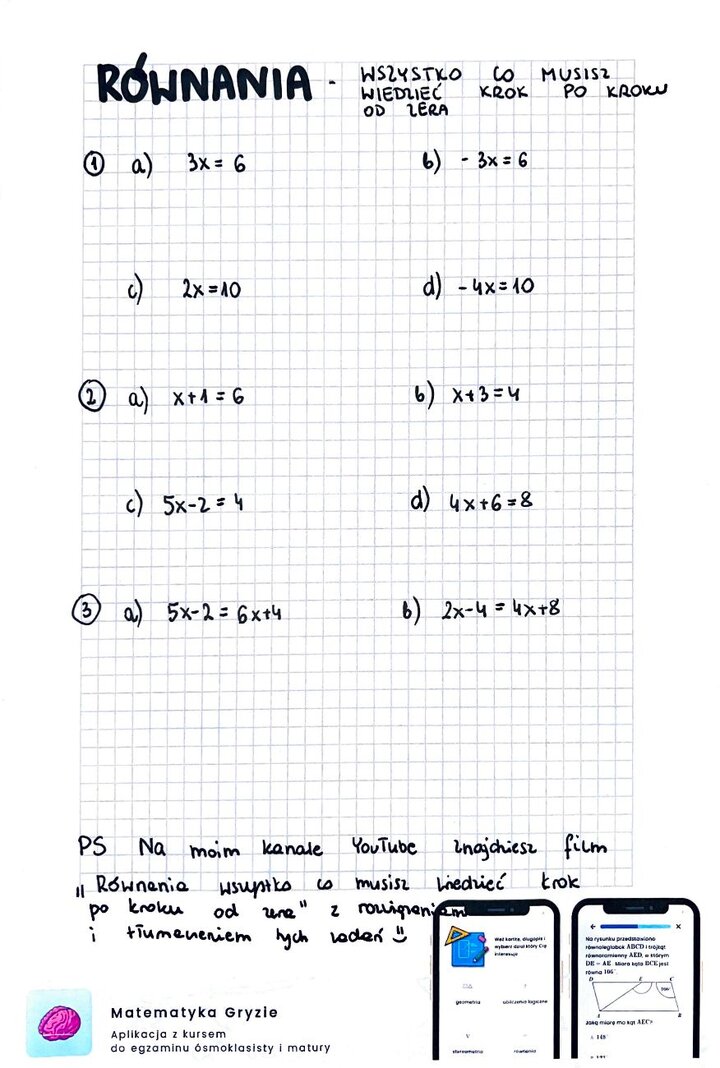 RÓWNANIA - WSZYSTKO CO MUSISZ
WIEDZIEĆ KROK PO KROKU
OD ZERA
1 a) 3x = 6 b) - 3x = 6
c) 2x = 10 d) - 4x = 10
2 a) x + 1 = 6 b) x + 3 = 4
c) 5x - 2 = 4 d) 4x + 6 = 8
3 a) 5x - 2 = 6x + 4 b) 2x - 4 = 4x + 8
PS Na moim kanale YouTube znajdziesz film
"Równania wszystko co musisz wiedzieć krok
po kroku od zera" z rozwiązaniem
i tłumaczeniem tych zadań
Matematyka Gryzie
Aplikacja z kursem
do egzaminu ósmoklasisty i matury
Weź kartkę, długopis i
wybierz dział który Cię
interesuje
geometria obliczenia logiczne
stereometria równania
Na rysunku przedstawiono
równoległobok ABCD i trójkąt
równoramienny AED, w którym
DE = AE. Miara kąta BCE jest
równa 106°.
D E C
106°
A B
Jaką miarę ma kąt AEC?
A 148°